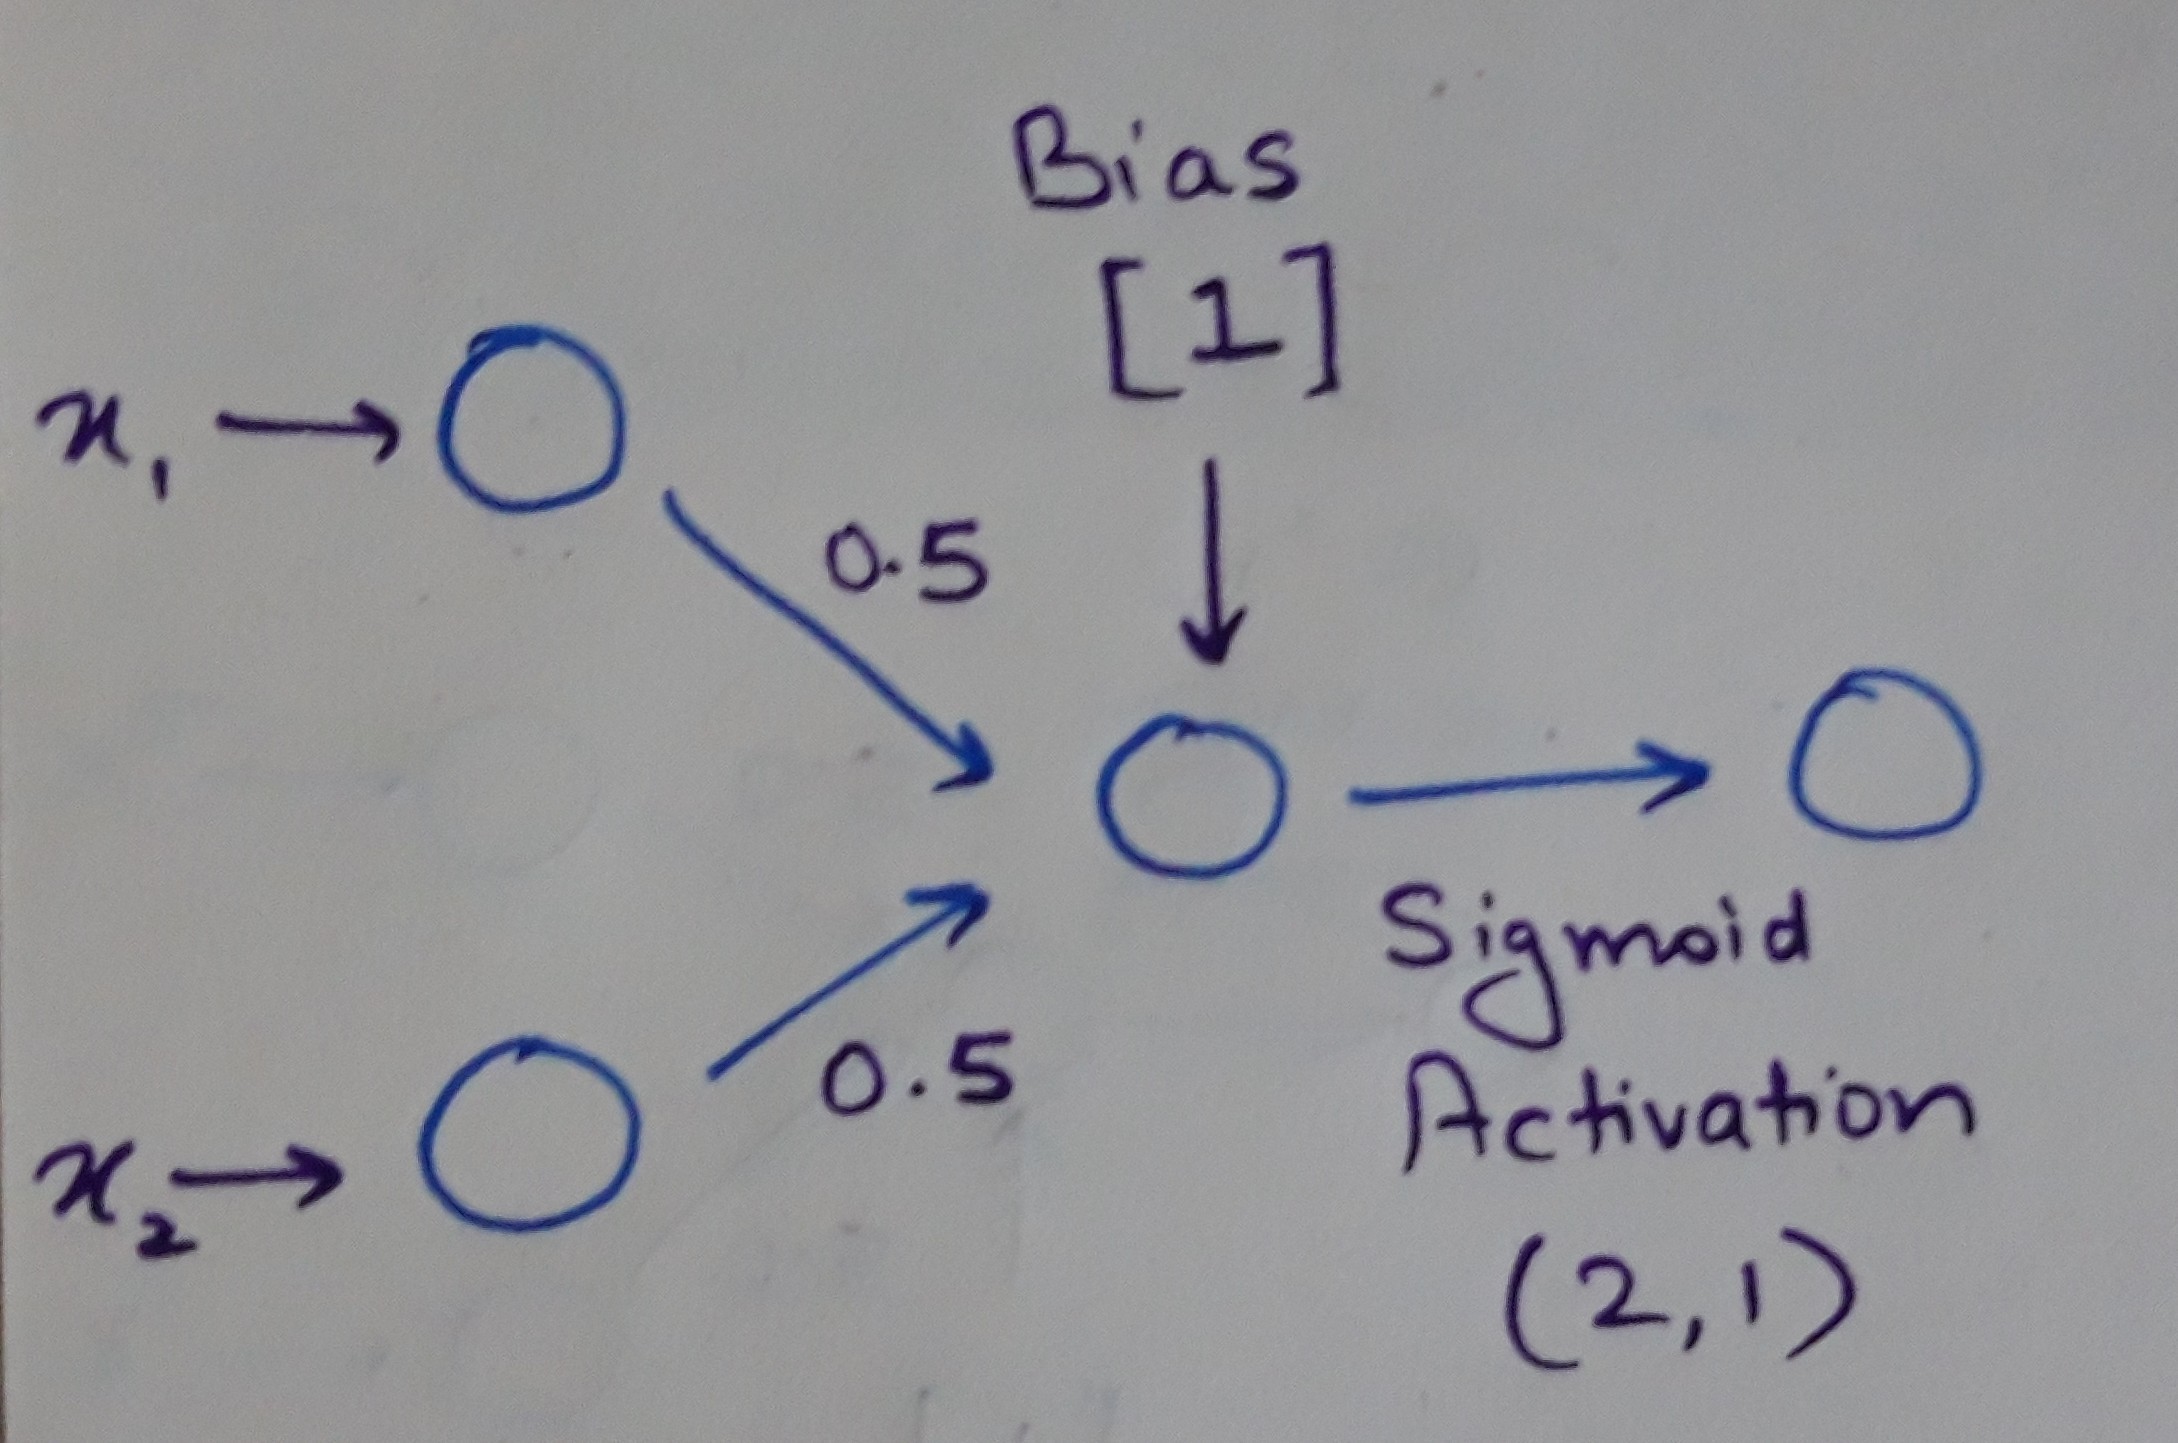 Bias
[1]
x₁
0.5
0.5
x₂
Sigmoid
Activation
(2,1)